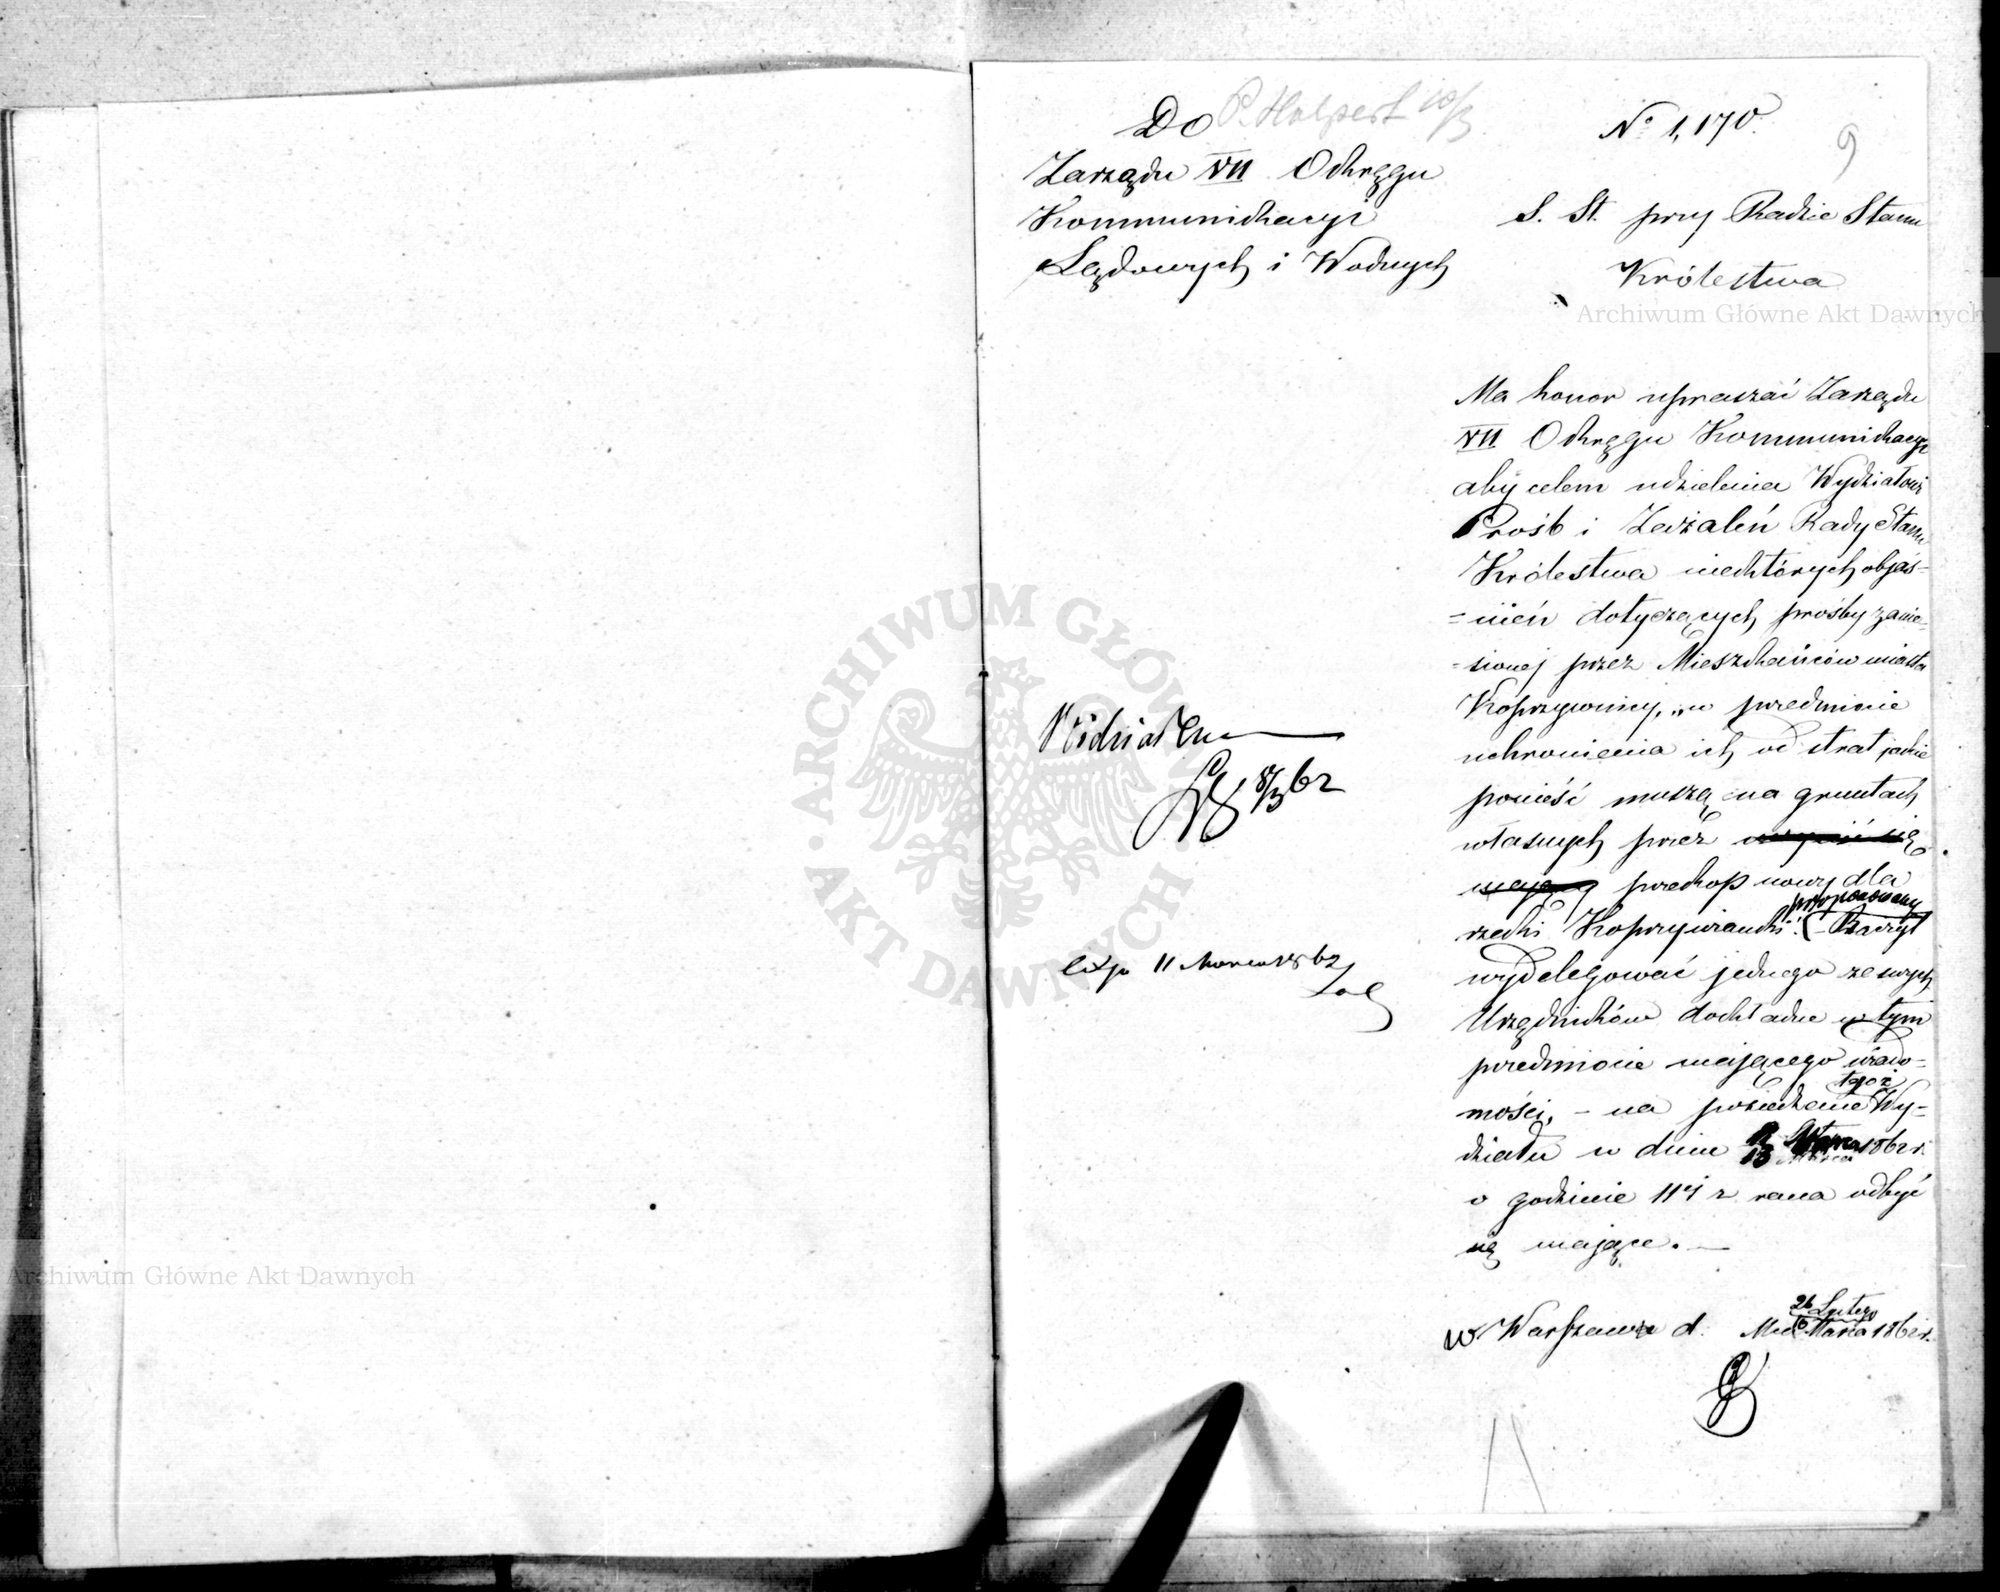 Do
P. Halpert 10/3
Zarządu VII Okręgu
Kommunikacyi
Lądowych i Wodnych
№ 1,170.
9
S. St. przy Radzie Stanu
Królestwa
Archiwum Główne Akt Dawnych
Ma honor upraszać Zarządu
VII Okręgu Kommunikacyi
aby celem udzielenia Wydziałowi
Prośb i Zażaleń Rady Stanu
Królestwa niektórych objaś-
=nień dotyczących prośby zanie-
=sionej przez Mieszkańców miasta
Koprzywnicy, "w przedmiocie
uchronienia ich od strat jakie
ponieść muszą na gruntach
własnych przez
mający przekop nowy dla
proponowany
rzeki Koprzywianki. Raczył
wydelegować jednego ze swych
Urzędników dokładne w tym
przedmiocie mającego wiado-
mości, – na posiedzenie tegoż Wy-
działu w dniu 13 Marca 1862 r.
o godzinie 11éj z rana odbyć
się mające. —
w Warszawie d. 26 Lutego
Marca 1862 r.
8/3 62
exp 11 Marca 1862
ARCHIWUM GŁÓWNE AKT DAWNYCH
Archiwum Główne Akt Dawnych